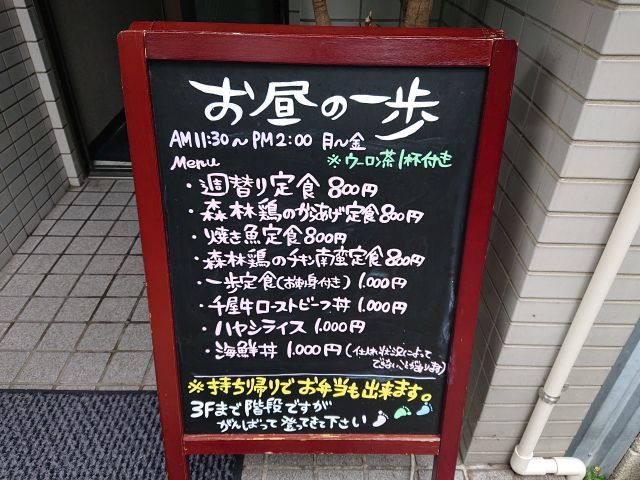 お昼の一歩
AM11:30～PM2:00 月～金
※ウーロン茶1杯付き
Menu
・週替り定食 800円
・森林鶏のからあげ定食800円
・焼き魚定食800円
・森林鶏のチキン南蛮定食800円
・一歩定食(お刺身付き) 1.000円
・千屋牛ローストビーフ丼 1.000円
・ハヤシライス 1.000円
・海鮮丼 1.000円(仕入れ状況によって
できないことがあります)
※持ち帰りでお弁当も出来ます。
3Fまで階段ですが
がんばって登ってきて下さい